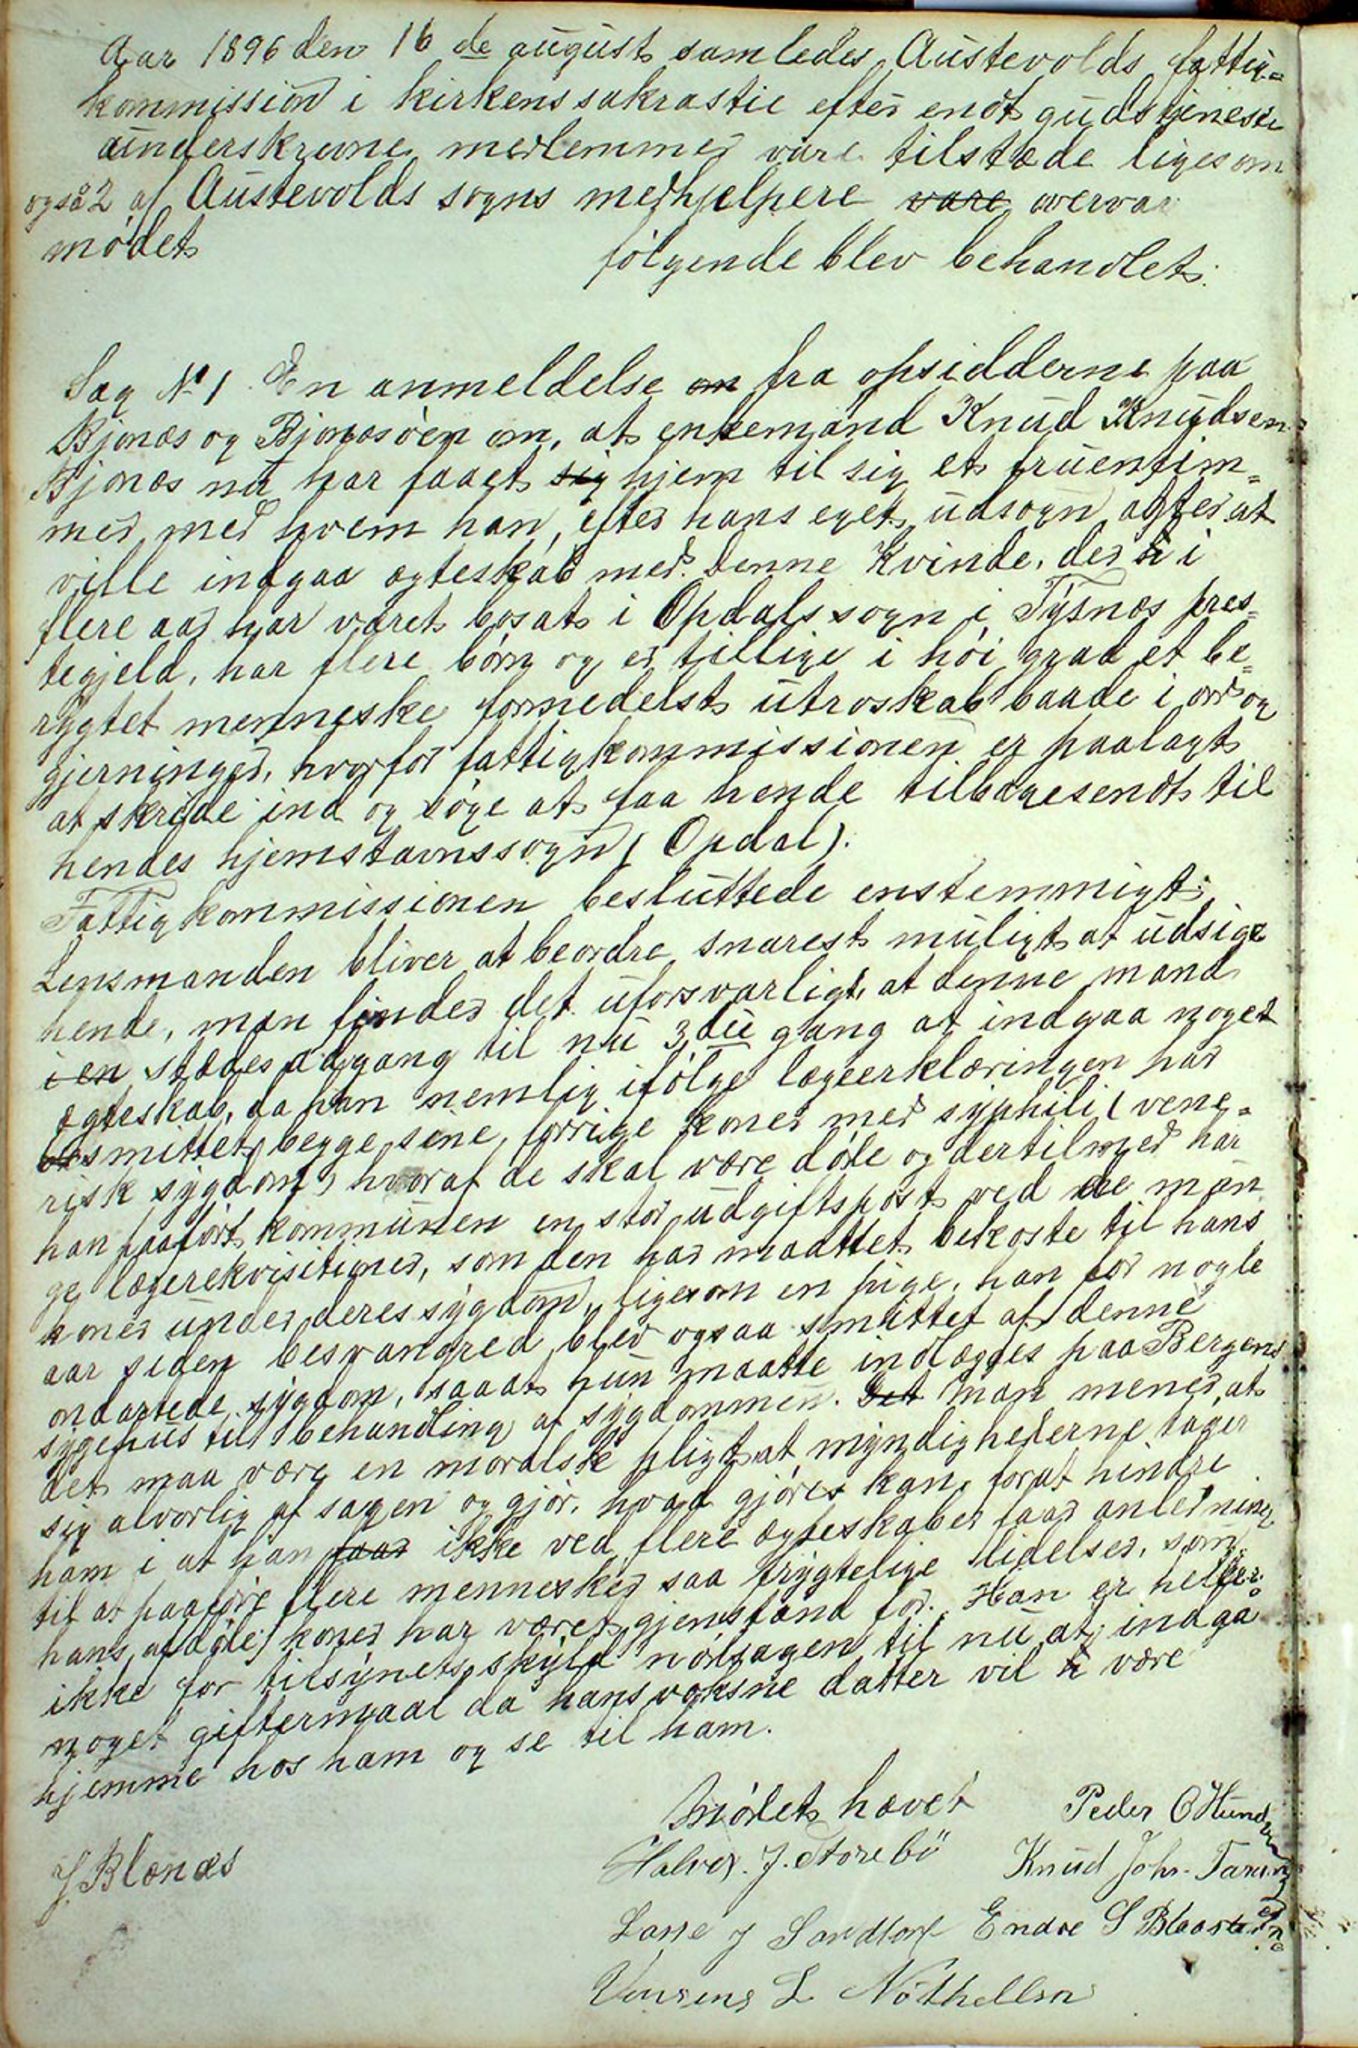 Aar 1896 den 16 de august samledes Austevolds fattig=
kommission i kirkens sakrastie efter endt gudstjeneste
underskrevne medlemmer vare tilstæde ligesom
også 2 af Austevolds sogns medhjelpere vare overvar
mødet
følgende blev behandlet:
Sag No 1 En anmeldelse om fra opsidderne paa
Bjønæs og Bjønæsøen om, at enkemand Knud Knudsen
Bjønæs nu har faaet sig hjem til sig et fruentim=
mer med hvem han, efter hans eget udsogn agter at
ville indgaa ægteskab med. Denne Kvinde, der h i
flere aar har været bosat i Opdals sogn i Tysnæs pres=
tegjeld, har flere børn og er tillige i høi grad et be=
rygtet menneske formedelst utroskab baade i ord og
gjerninger, hvorfor fattigkommissionen er paalagt
at skride ind og søge at faa hende tilbagesendt til
hendes hjemstavnssogn (Opdal).
Fattigkommissionen besluttede enstemmigt:
Lensmanden bliver at beordre snarest muligt at udsige
hende, man finder det uforsvarligt, at denne mand
i en stædes adgang til nu 3die gang at indgaa noget
ægteskab, da han nemlig ifølge lægeerklæringen har
be smittet begge sine forrige koner med syphili (vene=
risk sygdom) hvoraf de skal være døde og dertilmed har
han paaført kommunen en stor udgiftspost ved de man
ge lægerekvisitioner, som den har maattet bekoste til hans
koner under deres sygdom, ligesom en pige, han for nogle
aar siden besvangred blev ogsaa smittet af denne
ondartede sygdom, saaat hun maatte indlægges paa Bergens
sygehus til behandling af sygdommen. Det Man mener, at
det maa være en moralsk pligt at myndighederne tager
sig alvorlig af sagen og gjør, hvad gjøres kan, forat hindre
ham i at han faar ikke ved flere ægteskaber faar anledning
til at paaføre flere mennesker saa frygtelige lidelser, som
hans afdøde koner har været gjenstand for. Han er heller
ikke for tilsynets skyld nødsagen til nu at indgaa
noget giftermaal da hans voksne datter vil h være
hjemme hos ham og se til ham.
Mødet hævet
Peder O Hund
Halvor J. Storebø
Knud Joh.
J. Blænæs
Lasse J Sandtorv
Endre S
L Nøthellen